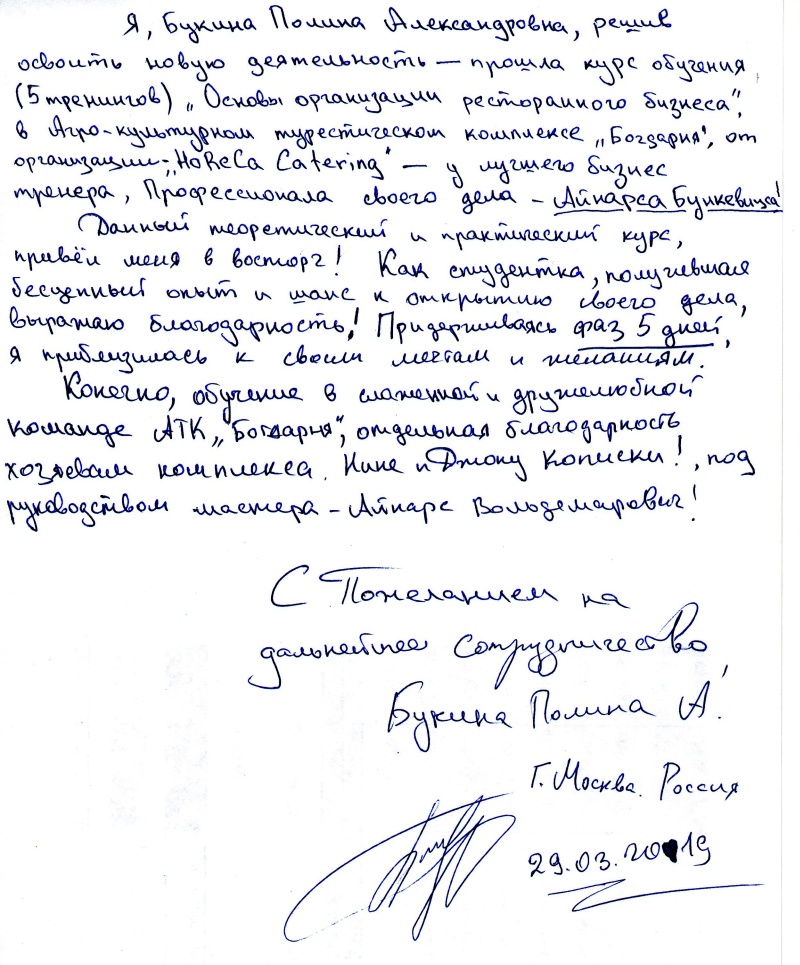 Я, Букина Полина Александровна, решив
освоить новую деятельность — прошла курс обучения,
(5 тренингов) „Основы организации ресторанного бизнеса",
в Агро-культурном турестическом комплексе „Богдарня", от
организации - „HoReCa Catering" — у лучшего бизнес
тренера, Профессионала своего дела - Айнарса Бункевица!
Данный теоретический и практический курс,
привёл меня в восторг! Как студентка, получившая
бесценный опыт и шанс к открытию своего дела,
выражаю благодарность! Придерживаясь фаз 5 дней,
я приблизилась к своим мечтам и желаниям.
Конечно, обучение в слаженной и дружелюбной
команде АТК „Богдарня", отдельная благодарность
хозяевам комплекса. Нине и Джону Кописки!, под
руководством мастера - Айнарс Вольдемарович!
С Пожеланием на
дальнейшее сотрудничество,
Букина Полина А.
Г. Москва. Россия
29.03.2019